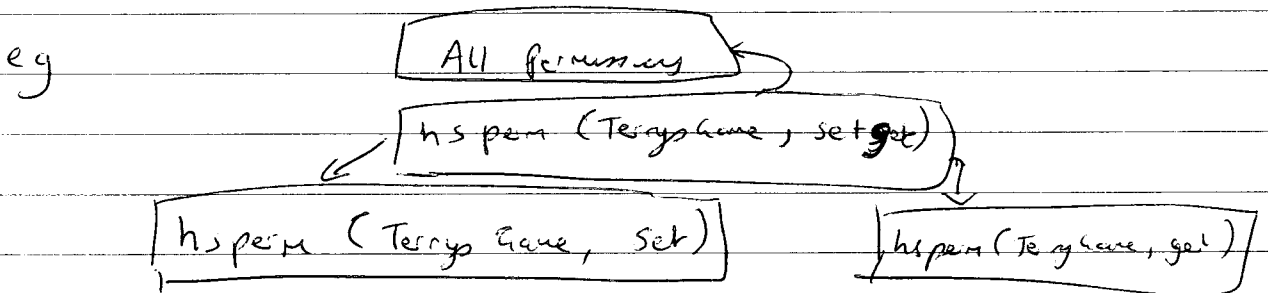 eg
All Permissions
hsperm (TerrysGame, setget)
hsperm (TerrysGame, set)
hsperm (TerryGame, get)